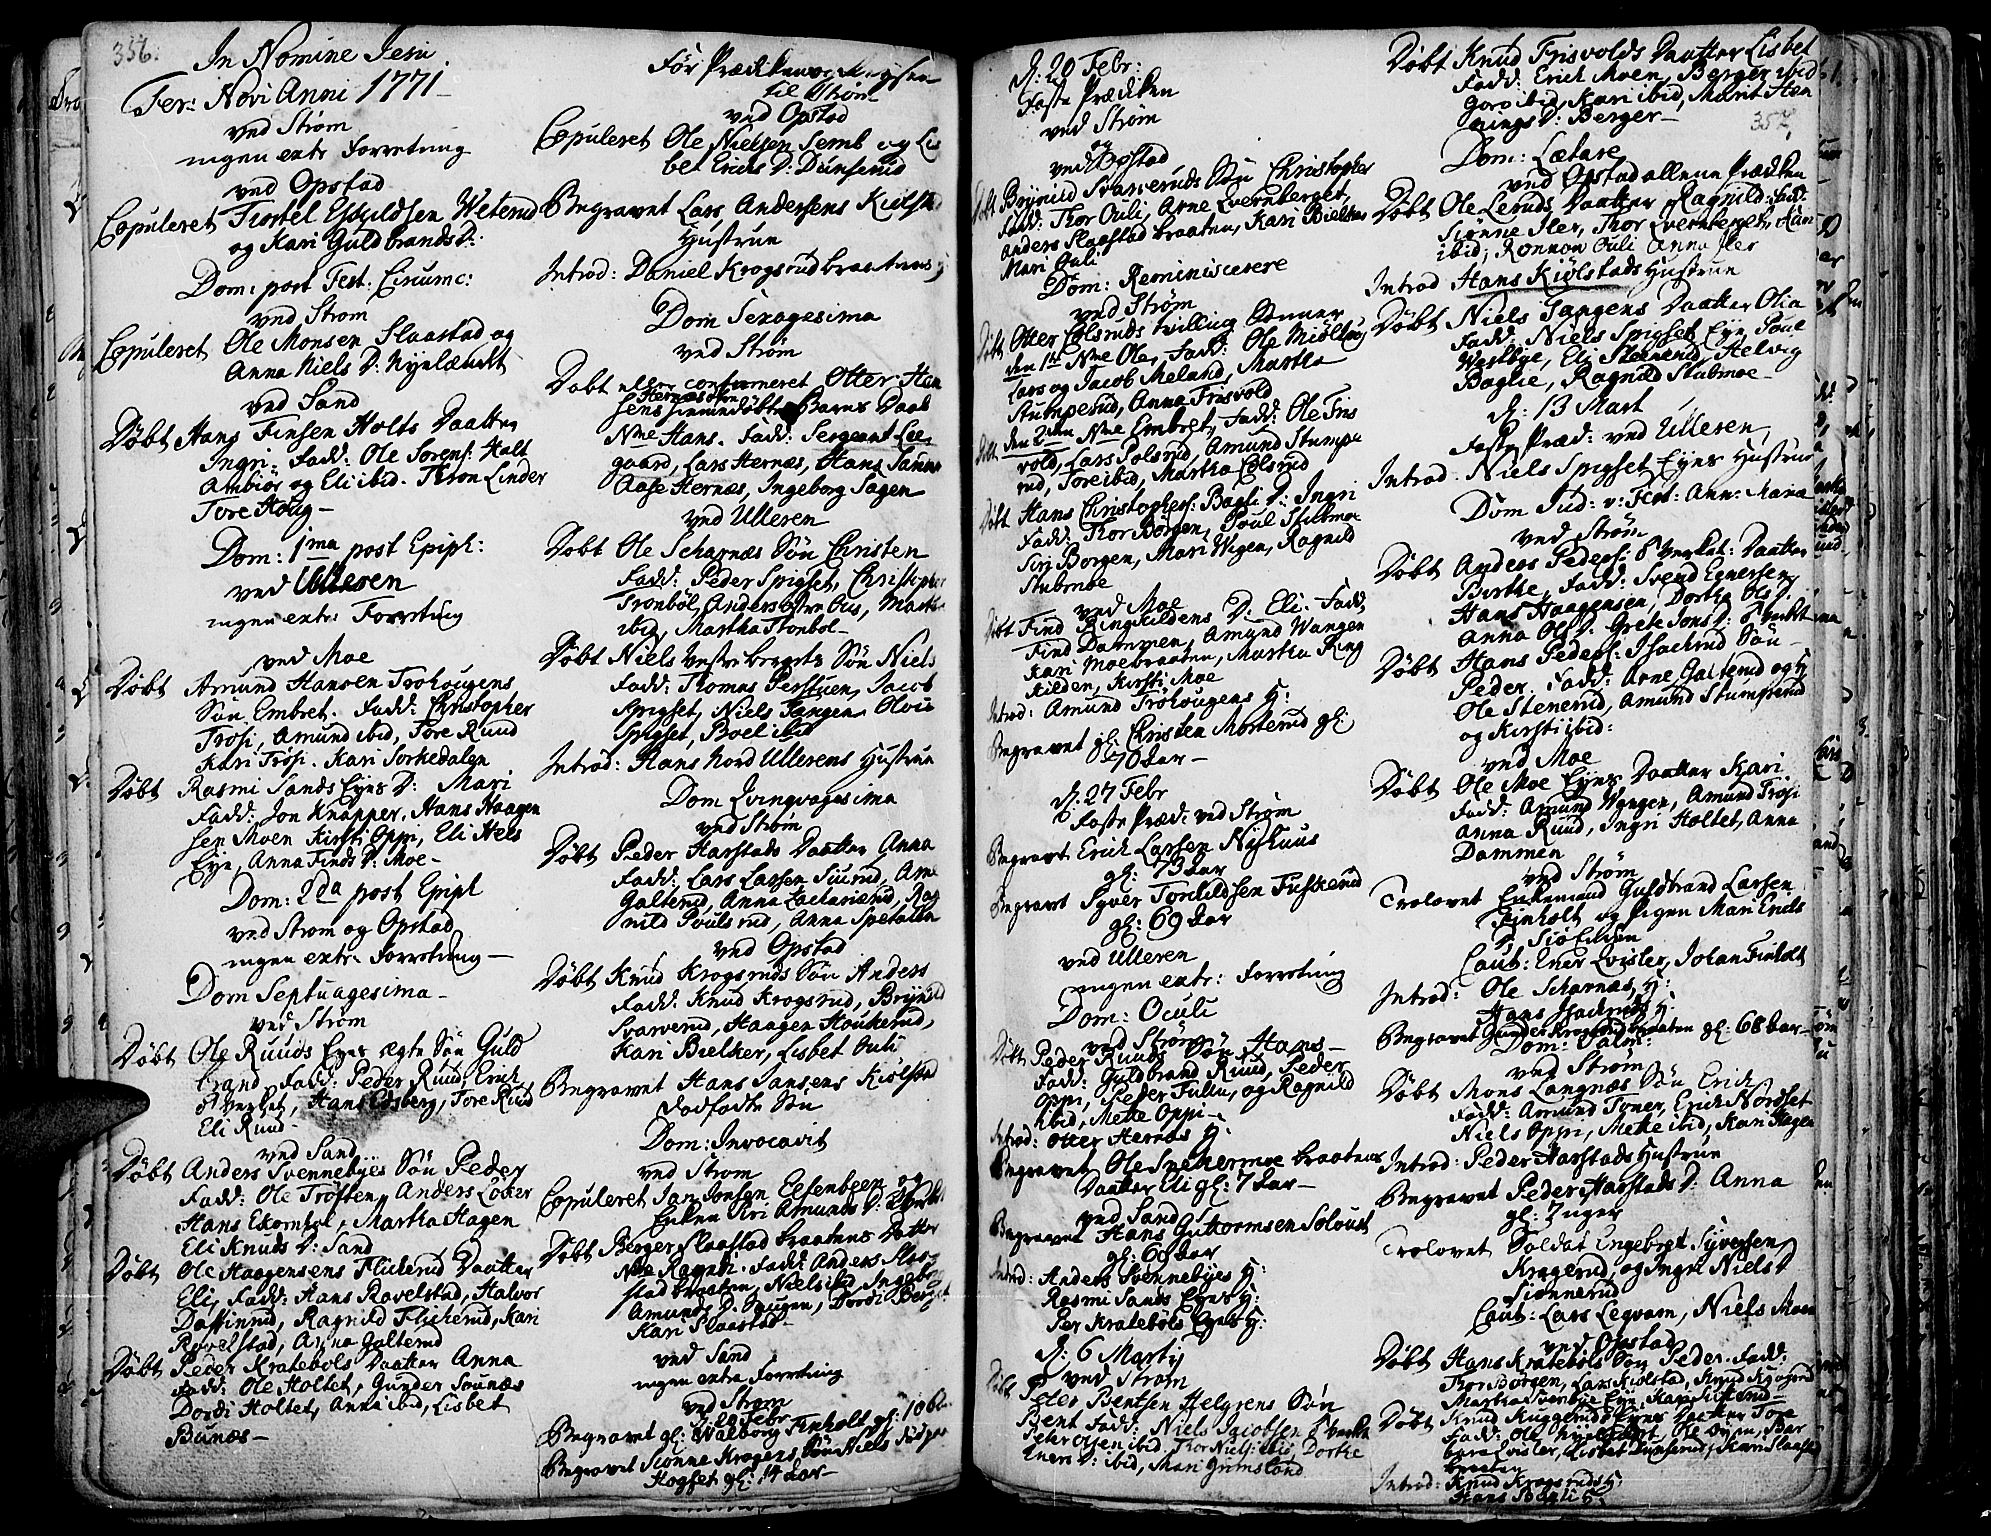 356.
In Nomine Jesu
Fer: Novi Anni 1771
ved Strøm
ingen extr. Forretning
ved Opstad
Copuleret Tostel Eskildsen Weterud
og Kari Guldbrands D:
Dom: post Fest. Circumc:
ved Strøm
Copuleret Ole Monsen Slaastad og
Anna Niels D:
ved Sand
Døbt Hans Finsen Holts Daatter
Ingri. Fadd: Ole Sørens: Holt
Ambiør og Eli ibid. Thron Linder
Tore Houg
Dom: 1ma post Epiph:
ved Ulleren
ingen extr. Forretning
ved Moe
Døbt Amund Hansen Trøhougens
Søn Embret. Fadd: Christopher
Trøsi, Amund ibid, Tore Ruud
Kari Trøsi. Kari Sorkedalen
Døbt Rasmi Sands Eyes D: Mari
Fadd: Jon Knapper, Hans Haagen
sen Moen Kirsti Oppi, Eli Hels
Eye, Anna Finds D: Moe
Dom: 2da post Epiph
ved Strøm og Opstad
ingen extr. Forretning
Dom Septuagesima
ved Strøm
Døbt Ole Ruuds Eyes ægte Søn Guld
brand Fadd: Peder Ruud, Erich
Hans Edsberg, Tore Ruud
Eli Ruud
ved Sand
Døbt Anders Svennebyes Søn Peder
Fadd: Ole Trøften, Anders
Hans Ekornhol, Martha Hagen
Eli Knuds D: Sand
Døbt Ole Haagensens Flicherud Daatter
Eli, Fadd: Hans Ravelstad, Halvor
Daffinrud, Ragnild Flicherud, Kari
Ravelstad, Anna Galterud
Døbt Peder Kratebøls Daatter Anna
Fadd: Ole Holtet, Gunder Sounæs
Dordi Holtet, Anna ibid, Lisbet
Bunæs
Før Prædiken
til Strøm
ved Opstad
Copuleret Ole Nielsen Semb og Lis
bet Erichs D: Dunserud
Begravet Lars Andersens Kiølstad
Hustrue
Introd: Daniel Krogsrud braatens
Dom Sexagesima
ved Strøm
Døbt eller confirmeret Otter Han
sens Hernæs hiemmedøbte Barns Daab
Nne Hans. Fadd: Sergeant Lee
gaard, Lars Hernæs, Hans
Aase Hernæs, Ingeborg Sagen
ved Ulleren
Døbt Ole Scharnæs Søn Christen
Fadd: Peder Spigset, Christopher
Tronbøl, Anders Aus, Martha
ibid, Martha Tronbøl
Døbt Niels Søn Niels
Fadd: Thomas Perstuen, Jacob
Spigset, Niels Tangen Olvia
Spigset, Boel ibid
Introd: Hans Nord Ullerens Hustrue
Dom Qvinqvagesima
ved Strøm
Døbt Peder Harstads Daatter Anna
Fadd: Lars Lassen Siurud, Arne
Galterud, Anna Zachariærud, Rag
nild Poulsrud, Anna Spetalen
ved Opstad
Døbt Knud Krogsruds Søn Anders
Fadd: Knud Krogsrud, Brynild
Svarverud, Haagen Houkerud,
Kari Bielker, Lisbet Ouli
Begravet Hans Jansens Kiølstad
dødfødte Søn
Dom: Invocavit
ved Strøm
Copuleret Jan Jonsen Eesenbeen og
Enken Siri Amunds D:
Døbt Berger Slaastad braatens Datter
Nne Ragnil. Fadd: Anders Slaa
stad braaten, Niels ibid, Ingebor
Amunds D. Haugen, Dordi Berger
Kari Slaastad
ved Sand
ingen extra Forretning
ved Strøm
d: 20 Febr
Begravet gl: Walborg Finholt gl: 106
Begravet Siønne Krogers Søn Niels
Hogset gl: 14 Aar
d: 20 Febr:
Faste Prædiken
ved Strøm
og
ved Opstad
Døbt Brynild Svarveruds Søn Christopher
Fadd: Thor Ouli, Arne Qvernberget,
Anders Slaastad braaten, Kari Bielker
Mari Ouli
Dom: Reminiscere
ved Strøm
Døbt Otter Colsruds tvilling Sønner
den 1te Nne Ole, Fadd: Ole
Lars og Jacob Meland, Martha
Stumperud, Anna Frisvold
Døbt den 2den Nne Embret, Fadd: Ole Fris
vold, Lars Polsrud, Amund Stumpe
rud, Tore ibid, Martha Colsrud
Døbt Hans Christophers: Bagli D: Ingri
Fadd: Thor Borgen, Poul Stubmoe
Siri Borgen, Mari Wigen, Ragnild
Stubmoe
ved Moe
Døbt Find Ringkildens D: Eli. Fadd
Find Dammen, Amund Wangen
Kari Moebraaten, Martha Ring
kilden, Kirsti Moe
Introd: Amund Trøhougens H:
Begravet gl: Christen Morterud gl:
70 Aar
d: 27 Febr
Faste Præd: ved Strøm
Begravet Erich Larsen Nyshuus
gl: 73 Aar
Begravet Syver Torkildsen Fuskerud
gl: 69 Aar
ved Ulleren
ingen extr: Forretning
Dom: Oculi
ved Strøm
Døbt Peder Ruuds Søn Hans
Fadd: Guldbrand Ruud, Peder
Oppi, Peder Fulu, og Ragnild
ibid, Mette Oppi
Introd: Otter Hernæs H:
Begravet Ole Snekermoe braatens
Daatter Eli gl: 7 Aar
ved Sand
Begravet Hans Guttormsen Soloust
gl: 60 Aar
Introd: Anders Svennebyes H:
Rasmi Sands Eyes H:
Per Kratebøls Eyes H:
d: 6 Martij
ved Strøm
Døbt Peter Bentsen Helgrens Søn
Bent Fadd: Niels Jacobsen
Peter Olsen ibid, Thor Niels: ibid, Dorthe
Eners D: ibid, Mari Grimsland
357.
Døbt Knud Frisvolds Daatter Lisbet
Fadd: Erich Moen, Berger ibid
Goro ibid, Kari ibid, Marit Hen
nings D: Berger
Dom: Lætare
ved Opstad allene Prædiken
Døbt Ole Leruds Daatter Ragnild. Fadd.
Siønne Iler, Thor Qvernberget, Gun
ibid, Ronnou Ouli Anna Iler
Introd Hans Kiølstads Hustrue
Døbt Niels Tangens Daatter Olia
Fadd: Niels Spigset Eye, Poul
Westbye, Eli Steenerud, Helvig
Baglie, Ragnild Stubmoe
d: 13 Mart
Faste Præd: ved Ulleren,
Introd. Niels Spigset Eyes Hustrue
Dom Jud: v: Fest: Ann: Mariæ
ved Strøm
Døbt Anders Peders: Daatter
Birthe, Fadd: Svend Enersen,
Hans Haagensen, Dorthe Ols D:
Anna Ols D: Grete Jons D:
Døbt Hans Peders: Isachrud Søn
Peder. Fadd: Arne Galterud
Ole Stenerud, Amund Stumperud
og Kirsti ibid:
ved Moe
Døbt Ole Moe Eyes Daatter Kari
Fadd: Amund Wangen, Amund Trøsi
Anna Ruud, Ingri Holtet, Anna
Dammen
ved Strøm
Trolovet Enkemand Guldbrand Larsen
Finholt og Pigen Mari Erichs
D:
Caut: Ener Qvisler, Johan Finholt
Introd: Ole Scharnæs, H:
Hans Isachruds H:
Begravet Gunder Krogsrud braaten gl: 68 Aar
Dom: Palm:
ved Strøm
Døbt Mons Langnæs Søn Erich
Fadd: Amund Toner, Erich Nordset
Niels Oppi, Mette ibid, Kari Hagen
Introd: Peder Harstads Hustrue
Begravet Peder Harstads D: Anna
gl: 7 uger
Trolovet Soldat Engebret Syversen
Kragerud, og Ingri Niels D
Siønnerud
Caut: Lars Legvam, Niels Moen
ved Opstad
Døbt Hans Kratebøls Søn Peder. Fadd:
Thor Borgen, Lars Kiølstad, Knud Krogsrud
Martha Svenbye Eye, Kari
Døbt Knud Ruggeruds Eyes Daatter Tore
Fadd: Ole
bara Qvisler, Lisbet Dunserud, Kari Slaastad
braaten
Introd: Knud Krogsruds H:
Hans Bagli H: